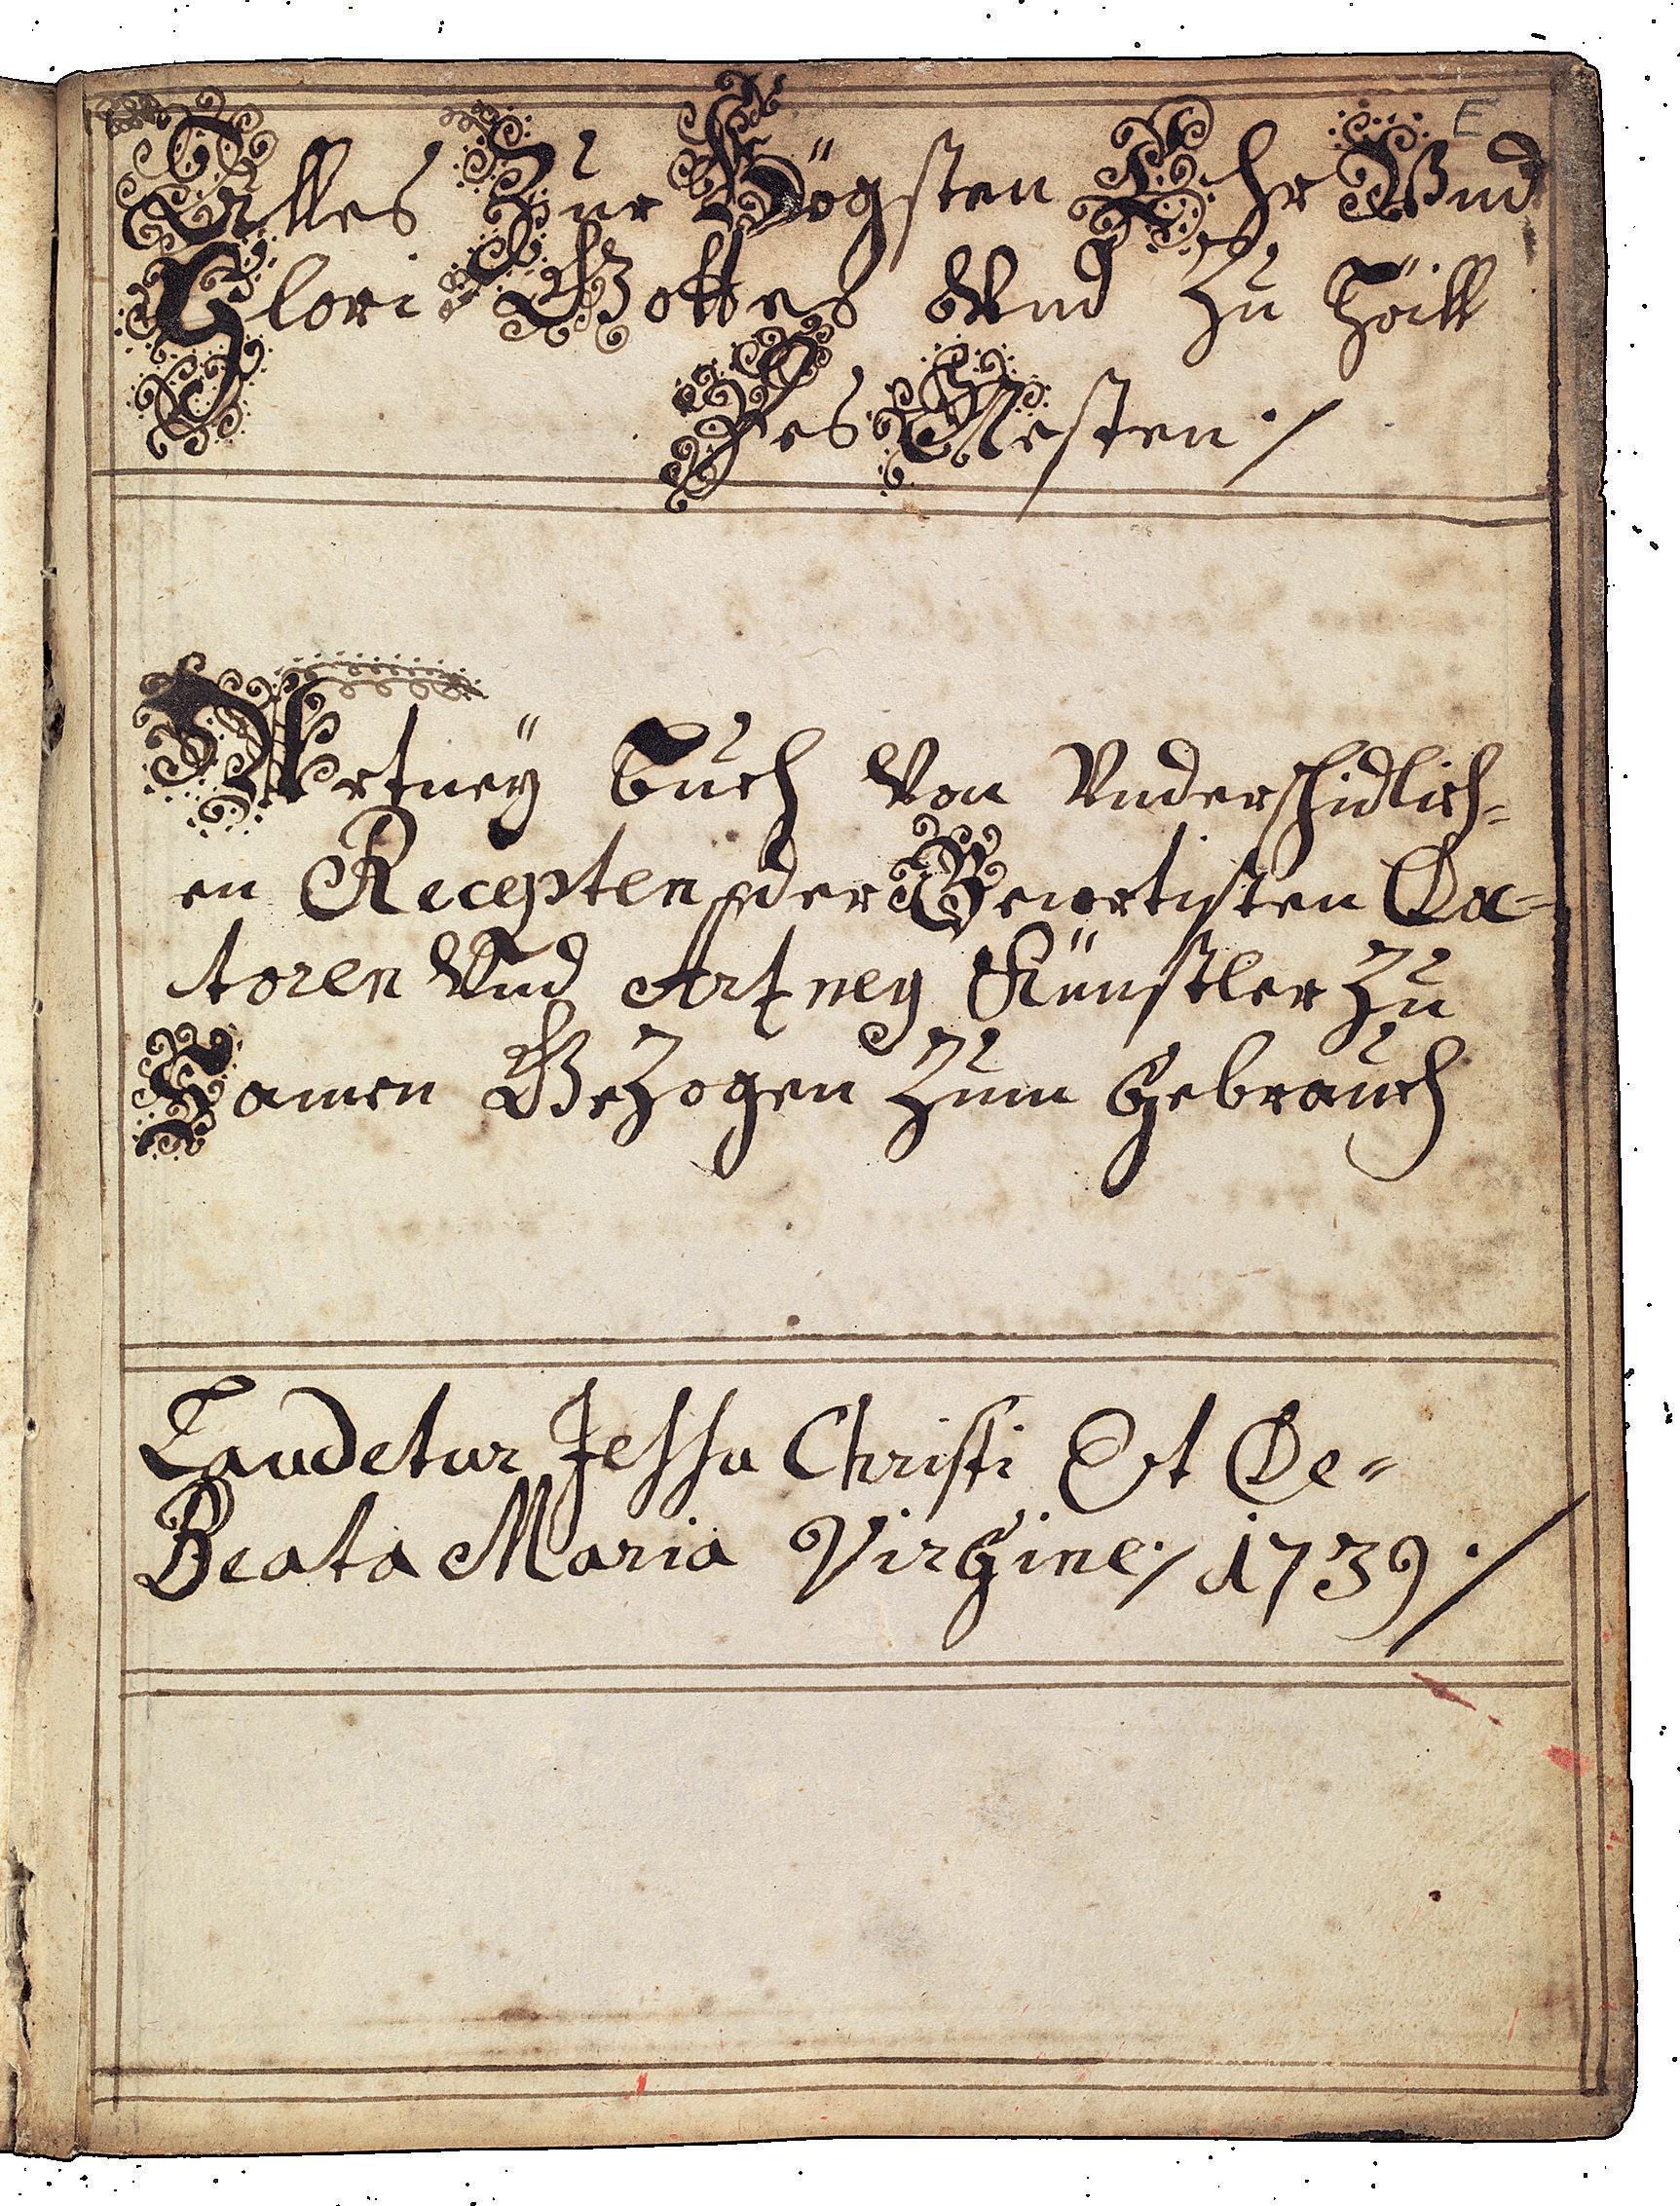 Alles Zur Högsten Ehr Vnd
Glori Gottes Vnd Zu Hail
Des Nesten ./
Artney buch Von Vnderschidlich=
en Recepten der Gewortisten Do=
toren Vnd Artzney Künstler Zu
Samen Gezogen Zum Gebrauch
Laudetur Jessu Christi Et De=
Beata Maria Virgine ./ 1739 ./